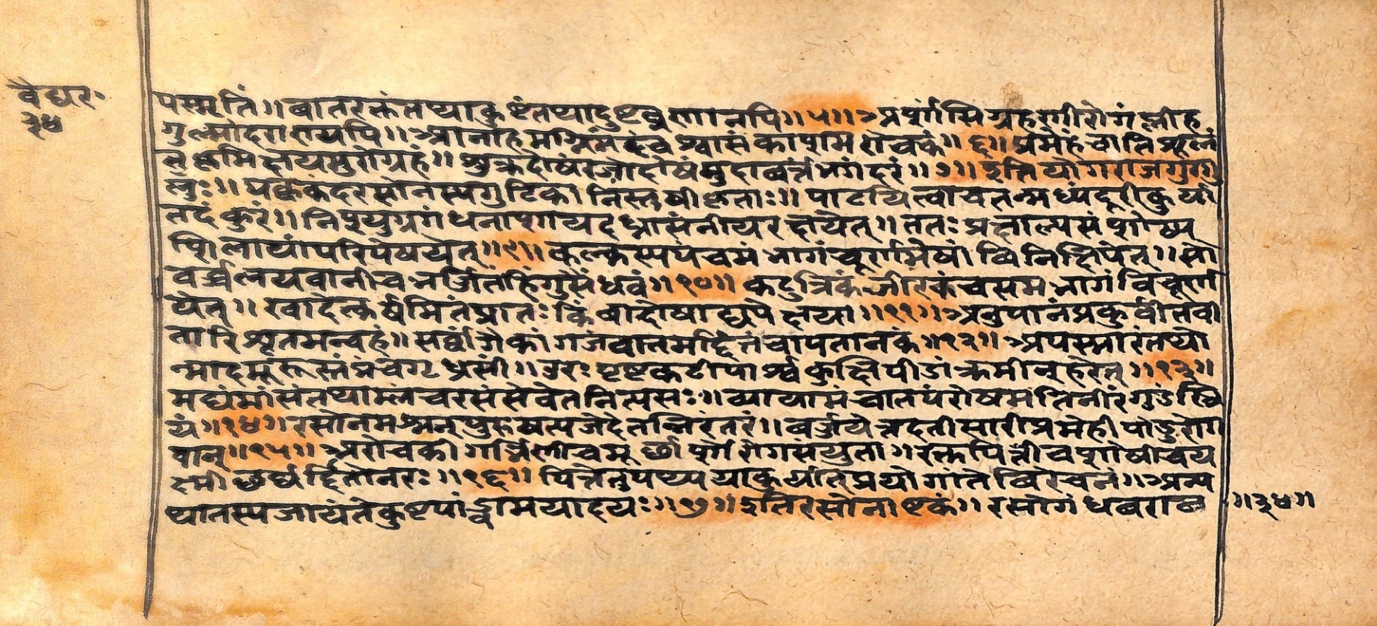 वैद्यर॰
३४
पस्मृतिं॥ वातरक्तं तथा कुष्टं तथा दुष्टव्रणानपि॥५॥ अर्शांसि ग्रहणीरोगं प्लीह
गुल्मोदराण्यपि॥ आनाहमग्निमंदंच श्वासं कासमरोचकं॥६॥ प्रमेहं नाभिशूलं
कृमिक्षयमुरोग्रहं॥ शुक्रदोषरजोदोषं मुदावर्त्तं भगंदरं॥७॥ इति योगराजगुग्गु
लुः॥ पक्वकंदरसोनस्यगुटिका निस्तुषीकृताः॥ पाटयित्वाचतन्मध्यंदूरीकुर्या
तदंकुरं॥ निश्युग्रगंधनाशायदध्नासंनीयरक्षयेत्॥ ततः प्रक्षाल्यसंशोष्य
शिलायांपरिपेषयेत्॥९॥ कल्कस्यपंचमं भागंचूर्णमेषां विनिक्षिपेत्॥ सौ
वर्च्चलयवानीच भर्जितंहिंगुसैंधवं॥१०॥ कटुत्रिकंजीरकंचसमभागं विचूर्ण
येत्॥ खादेत्कर्षमितंप्रातः किंवादोषाद्यपेक्षया॥११॥ अनुपानंप्रकुर्वीतवा
तारिशृतमन्वहं॥ सर्वांगैकांगजंवातमर्दितंचापतानकं॥१२॥ अपस्मारंतथो
न्मादमूरुस्तंभंचगृध्रसीं॥ उरः पृष्टकटीपार्श्वकुक्षिपीडांकृमीन्हरेत्॥१३॥
मद्यंमांसंतथाम्लंचरसंसेवेतनित्यसः॥ व्यायामंचातपंरोषमतिनीरंगुडंस्त्रि
यं॥१४॥ रसोनमश्नन्पुरुषस्त्यजेदेतन्निरंतरं॥ वर्जयेन्नदतीसारीप्रमेहीपांडुरोग
वान्॥१५॥ अरोचकीगर्भिणीचमूर्छार्शरोगसंयुता॥ रक्तपित्तीचशोषीचय
क्ष्मीछर्द्यर्दितोनरः॥१६॥ पित्तेतुपथ्ययाकुर्यात्प्रयोगांतेविरेचनं॥ अन्य
थातस्यजायंतेकुष्टपांड्वामयादयः॥७॥ इतिरसोनाष्टकं॥ रसोगंधवराव
॥३४॥